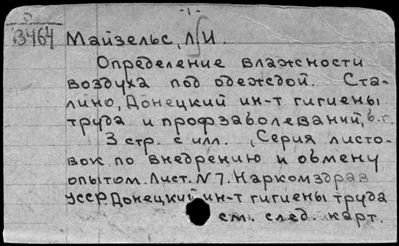 - 1 -
13464 Майзельс, Л.И.
Определение влажности
воздуха под одеждой. Ста-
лино, Донецкий ин-т гигиены
труда и профзаболеваний, б.г.
3 стр. с илл. (Серия листо-
вок по внедрению и обмену
опытом. Лист. №7. Наркомздрав
УССР Донецкий ин-т гигиены труда
см. след. карт.